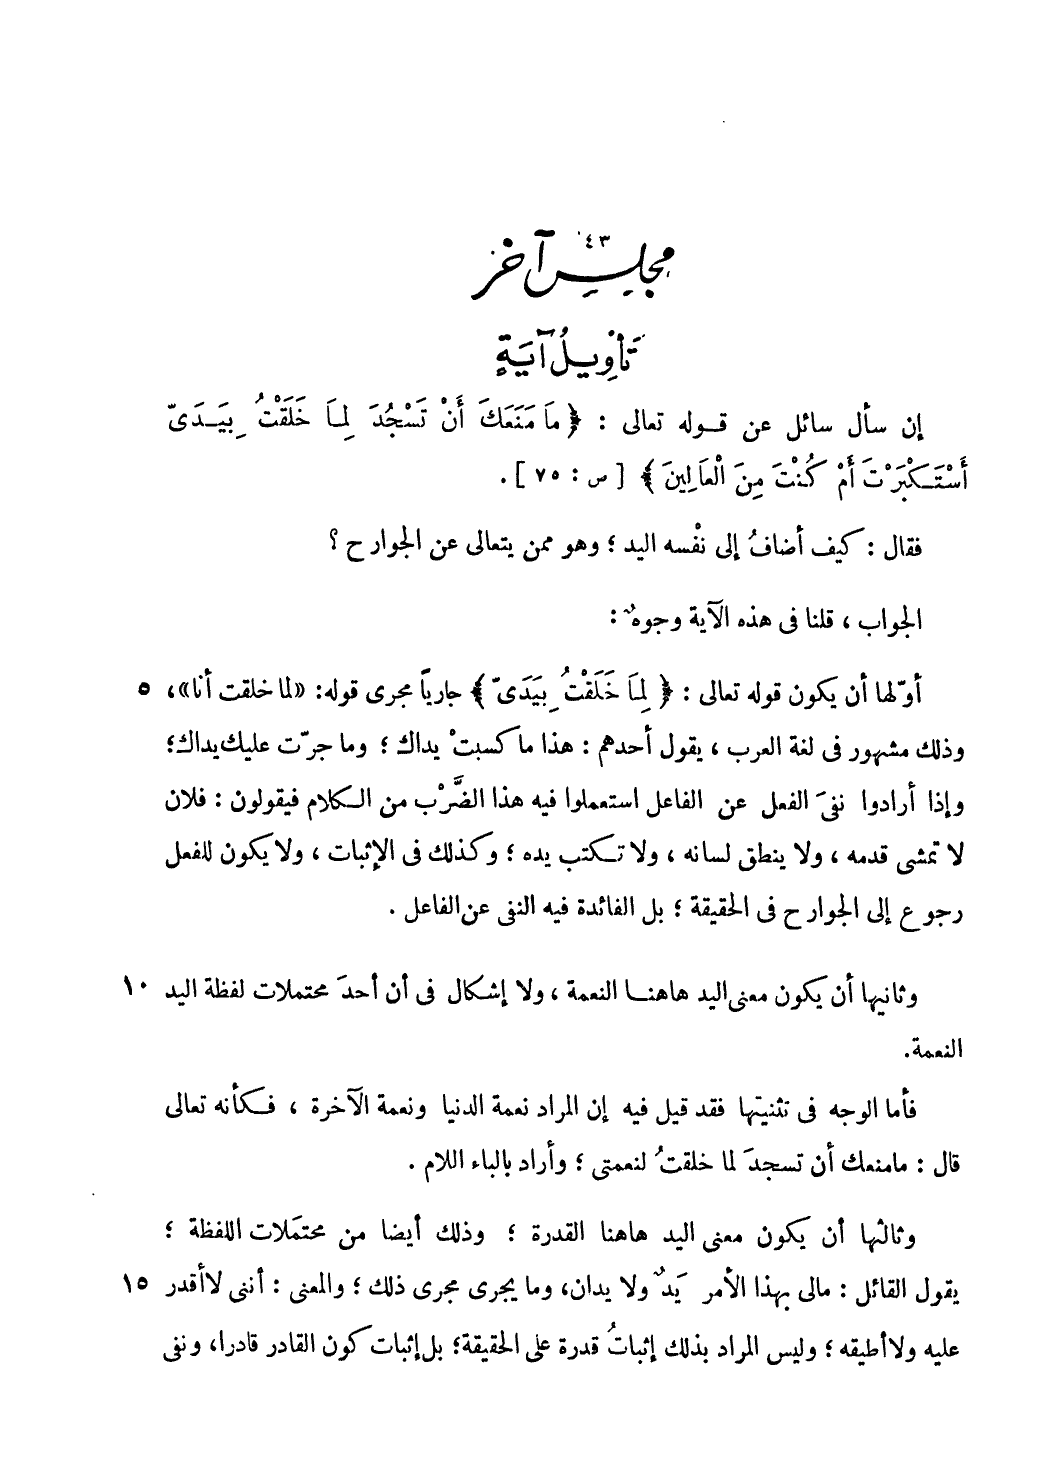 ٤٣
مجلس آخر
تأويل آية
إن سأل سائل عن قوله تعالى : ﴿ مَا مَنَعَكَ أَنْ تَسْجُدَ لِمَا خَلَقْتُ بِيَدَىّ
أَسْتَكْبَرْتَ أَمْ كُنْتَ مِنَ الْعَالِينَ ﴾ [ ص : ٧٥ ] .
فقال : كيف أضافُ إلى نفْسه اليد ؛ وهو ممن يتعالى عن الجوارح ؟
الجواب ، قلنا فى هذه الآية وجوهٌ :
أوّلها أن يكون قوله تعالى : ﴿ لِمَا خَلَقْتُ بِيَدَىّ ﴾ جارياً مجرى قوله: «لما خلقت أنا»، ٥
وذلك مشهور فى لغة العرب ، يقول أحدهم : هذا ما كسبتْ يداك ؛ وما جرّت عليك يداك؛
وإذا أرادوا نفىَ الفعل عن الفاعل استعملوا فيه هذا الضَّرْب من الكلام فيقولون : فلان
لا تمشى قدمه ، ولا ينطق لسانه ، ولا تكتب يده ؛ وكذلك فى الإثبات ، ولا يكون للفعل
رجوع إلى الجوارح فى الحقيقة ؛ بل الفائدة فيه النفى عن الفاعل .
وثانيها أن يكون معنى اليد هاهنا النعمة ، ولا إشكال فى أن أحدَ محتملات لفظة اليد ١٠
النعمة.
فأما الوجه فى تثنيتها فقد قيل فيه إن المراد نعمة الدنيا ونعمة الآخرة ، فكأنه تعالى
قال : مامنعك أن تسجدَ لما خلقتُ لنعمتى ؛ وأراد بالباء اللام .
وثالثها أن يكون معنى اليد هاهنا القدرة ؛ وذلك أيضا من محتمَلات اللفظة ؛
يقول القائل : مالى بهذا الأمر يَدٌ ولا يدان، وما يجرى مجرى ذلك ؛ والمعنى : أننى لاأقدر ١٥
عليه ولاأطيقه ؛ وليس المراد بذلك إثباتُ قدرة على الحقيقة؛ بل إثبات كون القادر قادرا، ونفى